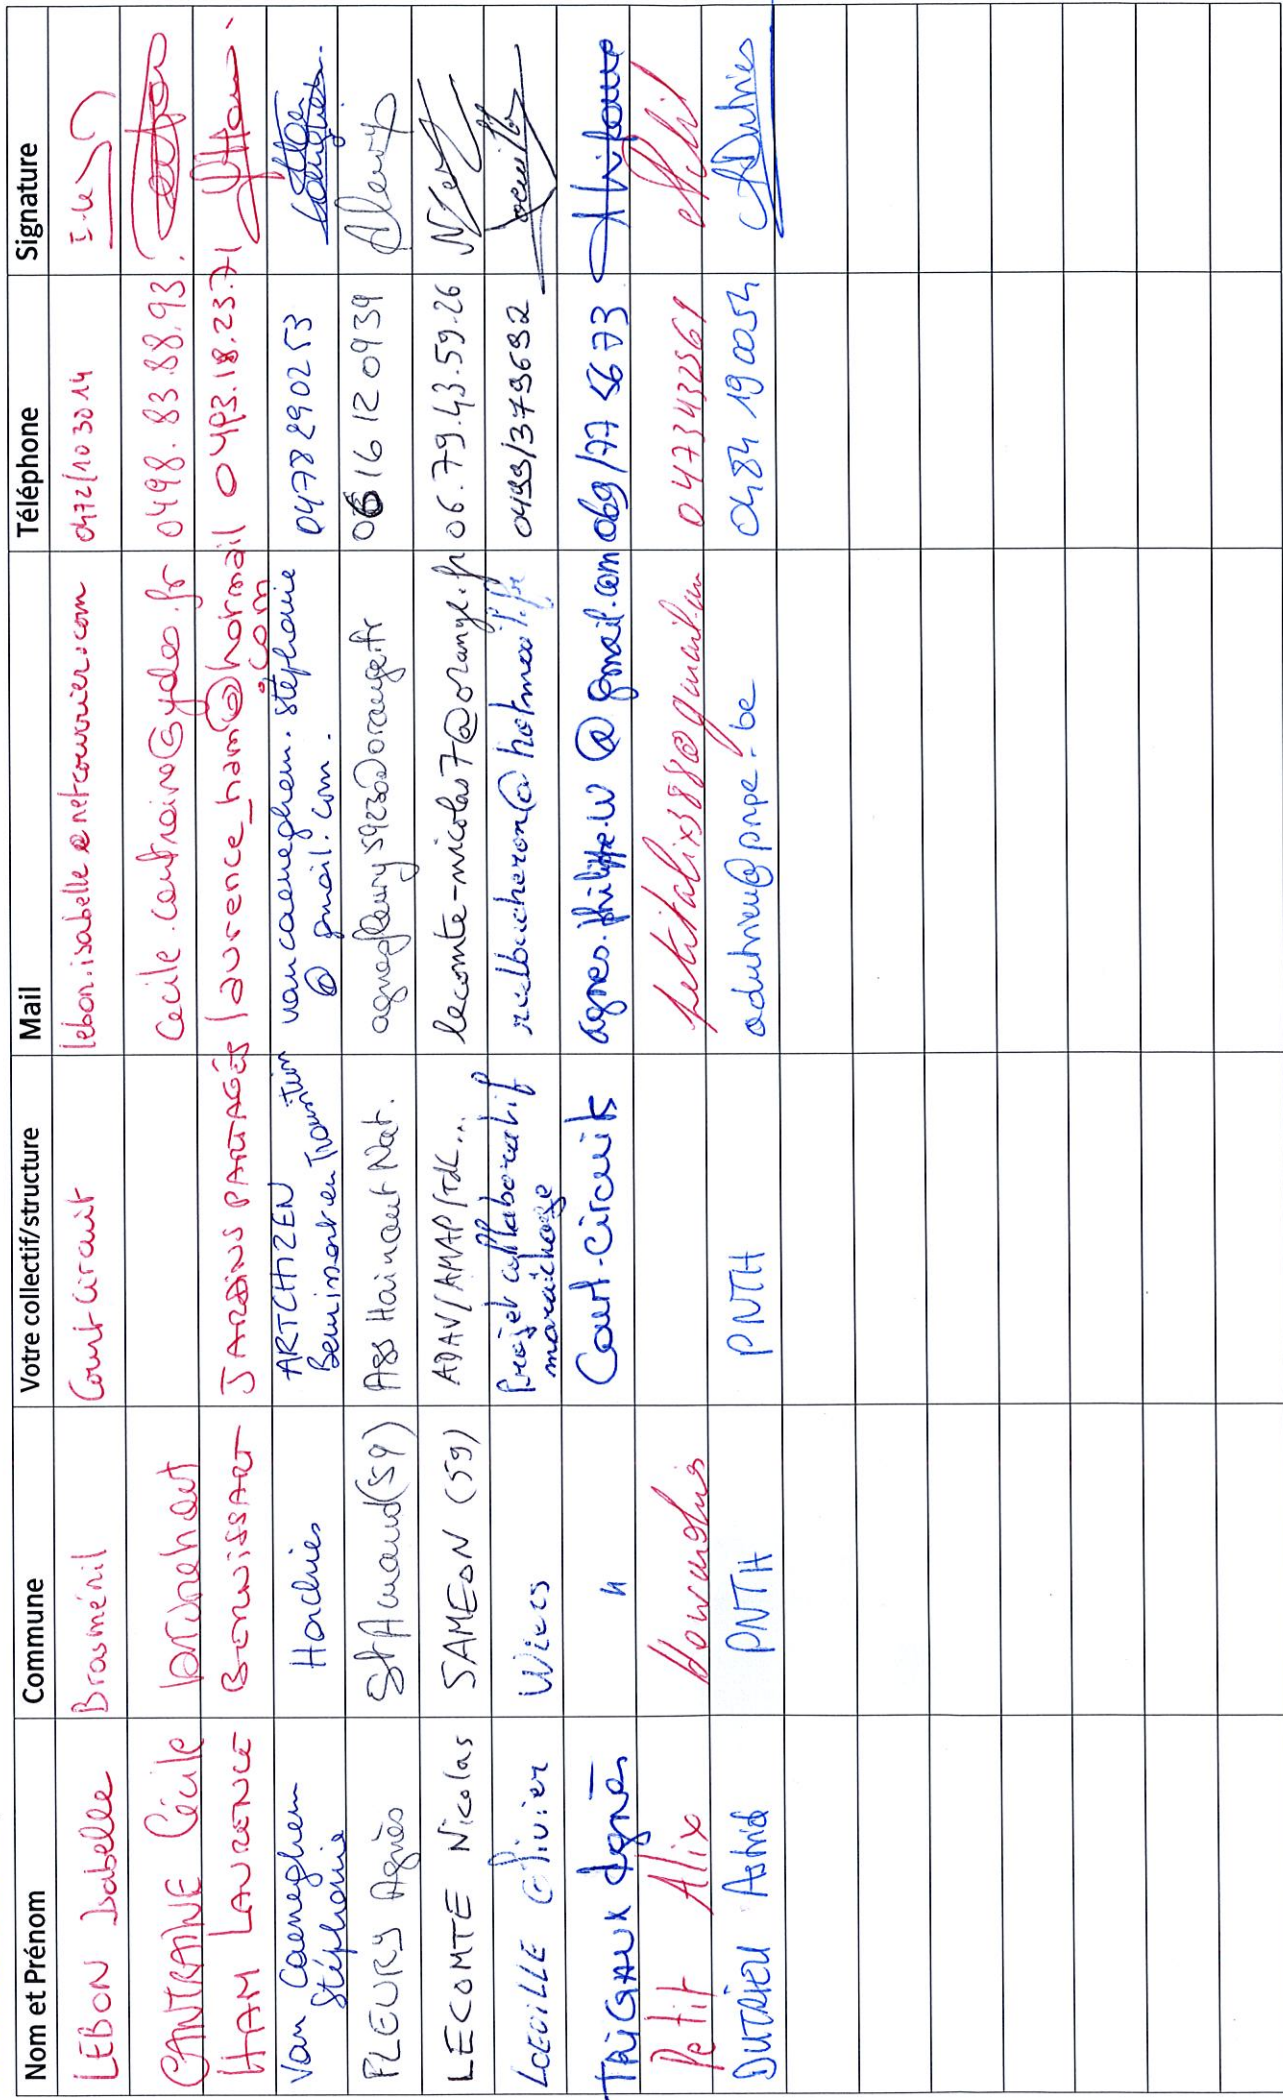 Nom et Prénom Commune Votre collectif/structure Mail Téléphone Signature
LEBON Isabelle Brasménil Court Circuit lebon.isabelle@netcourrier.com 0472/103014
CANTRAINE Cécile 0498.83.88.93
HAM LAURENCE BERNISSART JARDINS PARTAGÉS laurence_ham@hotmail.com 0493.18.23.71
Van Caeneghem Stéphanie Harchies ARTCHIZEN Bernissart en Transition vancaeneghem.stephanie@gmail.com 0478290253
FLEURY Agnès St Amand (59) Ass Hainaut Nat. agnesfleury59230@orange.fr 0616120939
LECOMTE Nicolas SAMEON (59) ADAV/AMAP/TdL... lecomte-nicolas7@orange.fr 06.79.43.59.26
LOEUILLE Olivier Wiers Projet collaboratif maraichage 0499/379692
TRIGAUX Agnès " Court-Circuits agnes.philippe.w@gmail.com 069/77 5673
Petit Alix Howardries petitalix388@gmail.com 0473432561
DUTRIEU Astrid PNTH PNTH adutrieu@pnpe.be 0484 190054